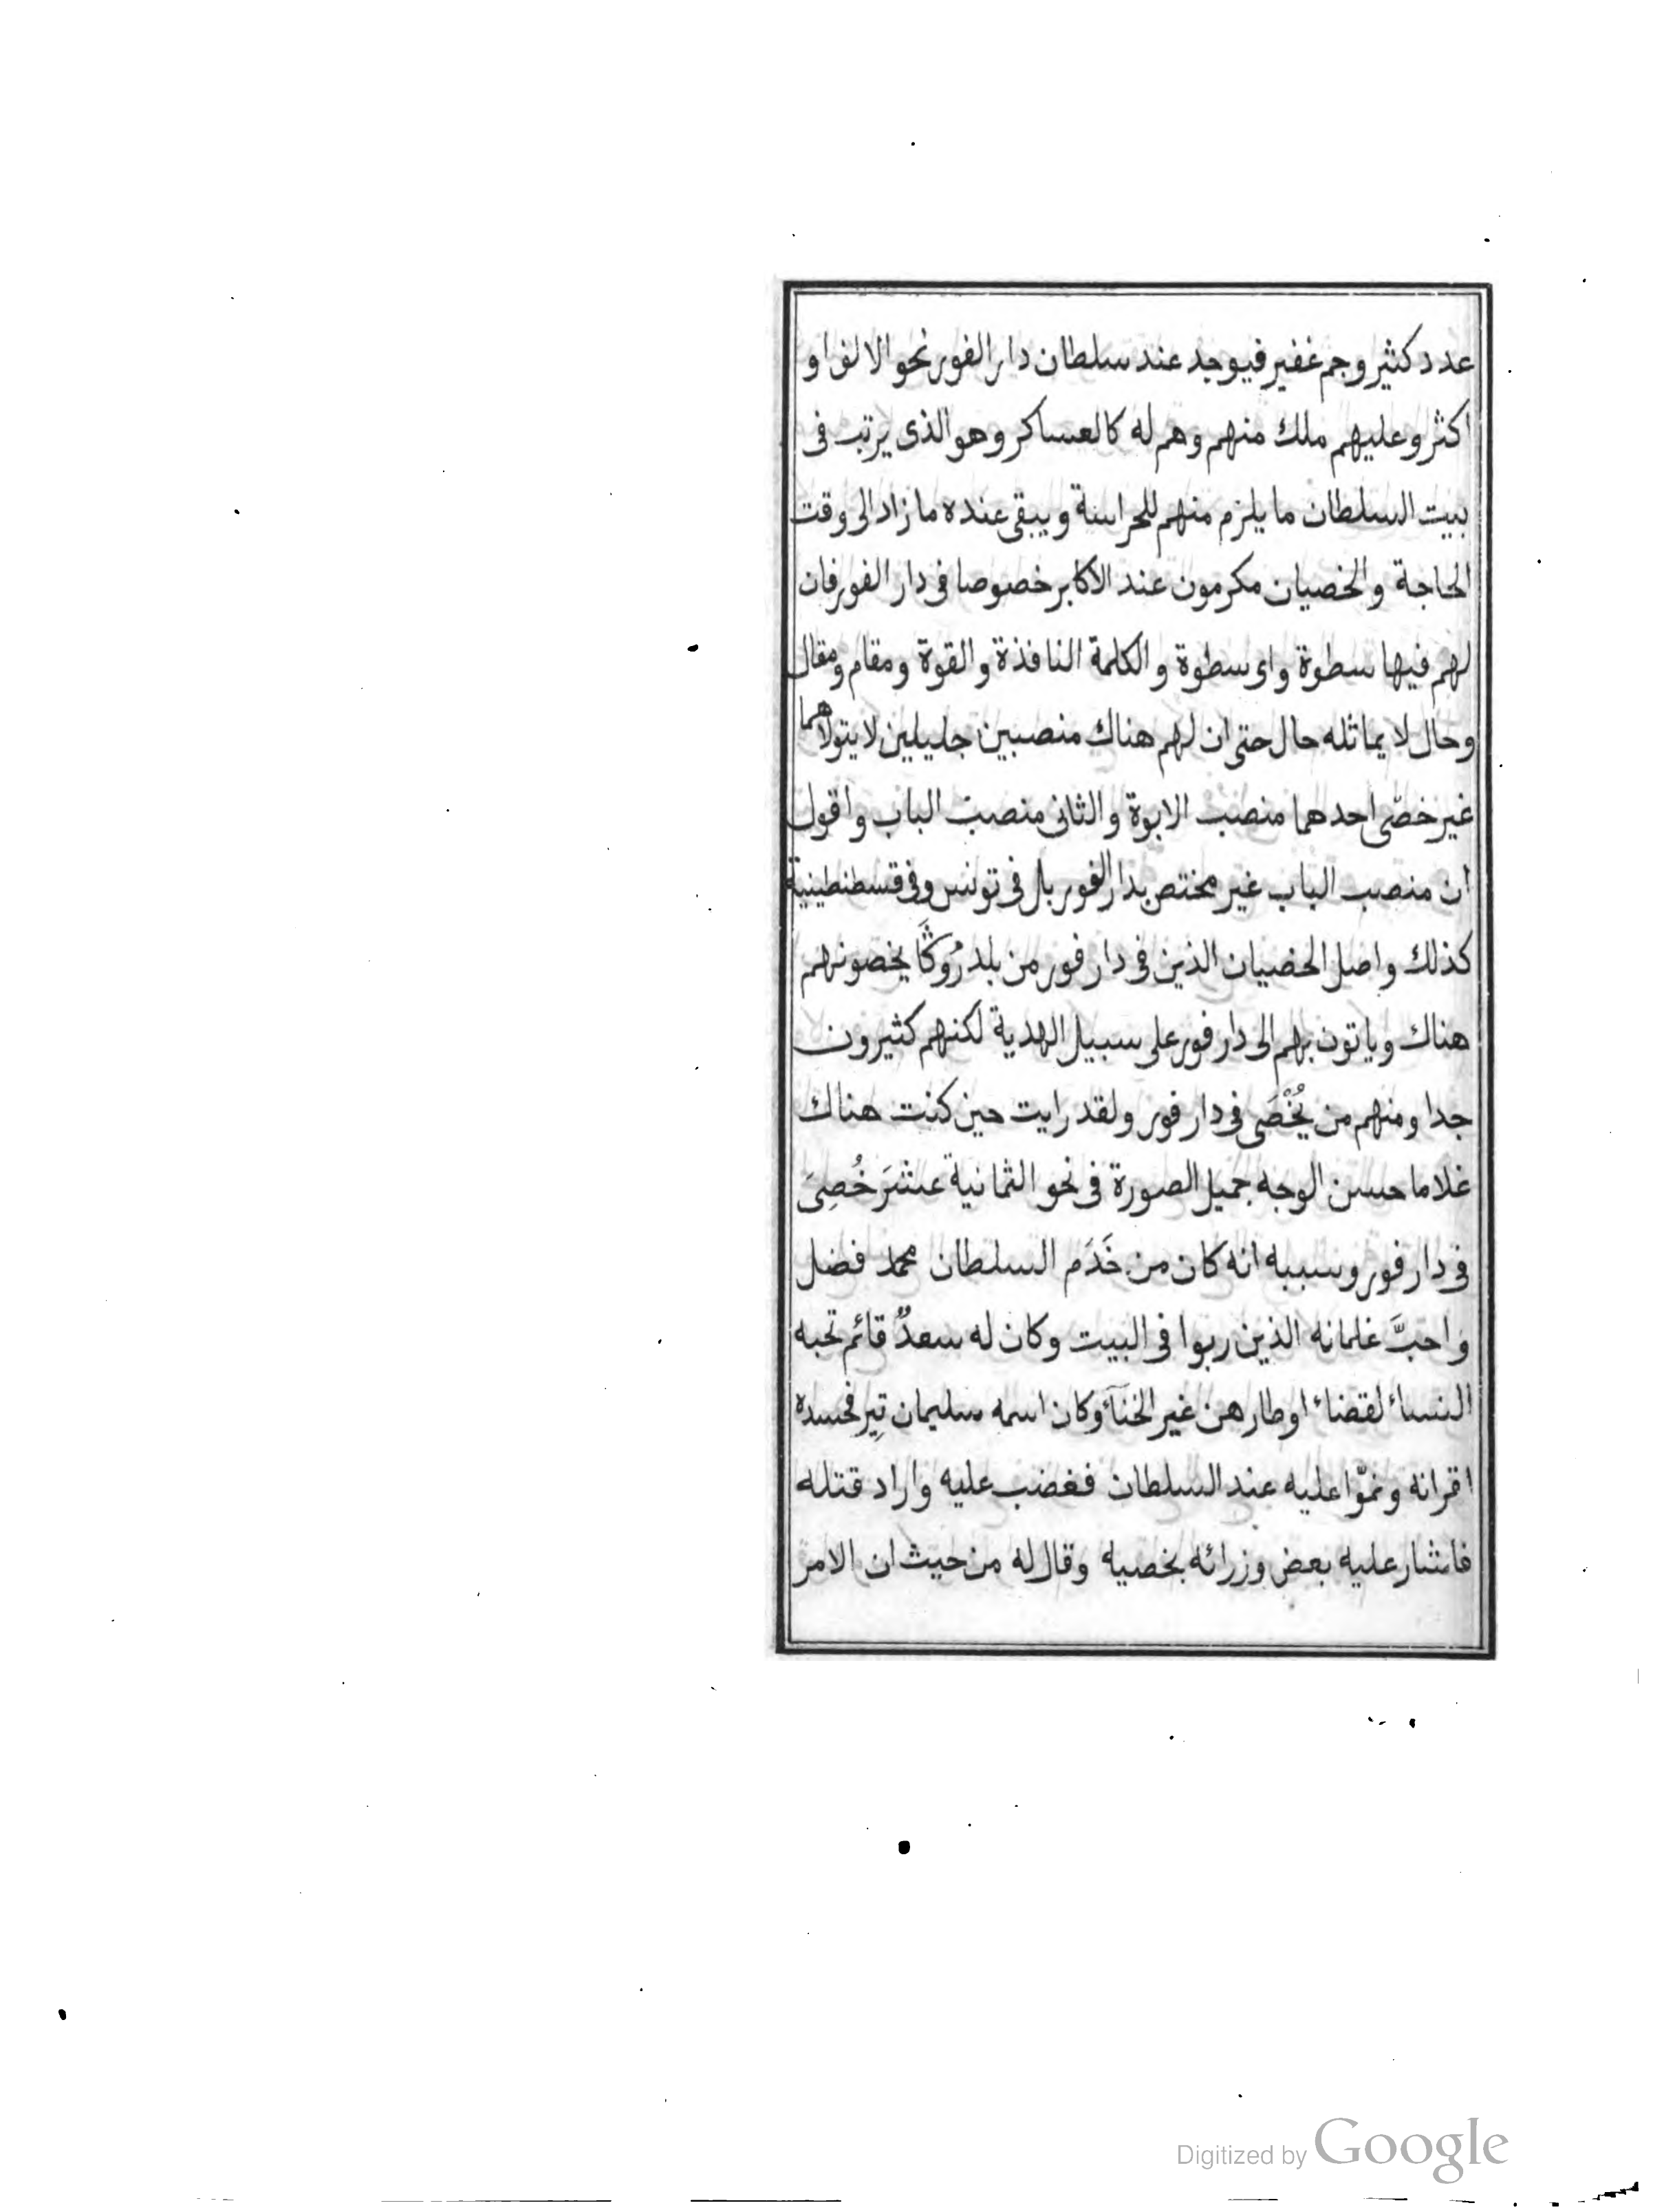 عدد كثير وجم غفير فيوجد عند سلطان دار الفور نحو الالف او
اكثر وعليهم ملك منهم وهم له كالعساكر وهو الذى يرتب فى
بيت السلطان ما يلزم منهم للحراسة ويبقى عنده ما زاد الى وقت
الحاجة والخصيان مكرمون عند الاكابر خصوصا فى دار الفور فان
لهم فيها سطوة واى سطوة والكلمة النافذة والقوة ومقام ومقال
وحال لا يماثله حال حتى ان لهم هناك منصبين جليلين لا يتولاهما
غير خصّى احدهما منصب الابوة والثانى منصب الباب واقول
ان منصب الباب غير مختص بدار الفور بل فى تونس وفى قسطنطينية
كذلك واصل الخصيان الذين فى دار فور من بلد رُوكَّا يخصونهم
هناك وياتون بهم الى دار فور على سبيل الهدية لكنهم كثيرون
جدا ومنهم من يُخْصَى فى دار فور ولقد رايت حين كنت هناك
غلاما حسن الوجه جميل الصورة فى نحو الثمانية عشَرَ خُصِىَ
فى دار فور وسببه انه كان من خَدَم السلطان محمد فضل
واحبَّ غلمانه الذين ربوا فى البيت وكان له سعدٌ قائم تحبه
النساء لقضاء اوطارهن غير الخنآء وكان اسمه سليمان تِير فحسده
اقرانه ونمّوا عليه عند السلطان فغضب عليه واراد قتله
فاشار عليه بعض وزرائه بخصيه وقال له من حيث ان الامر
Digitized by Google